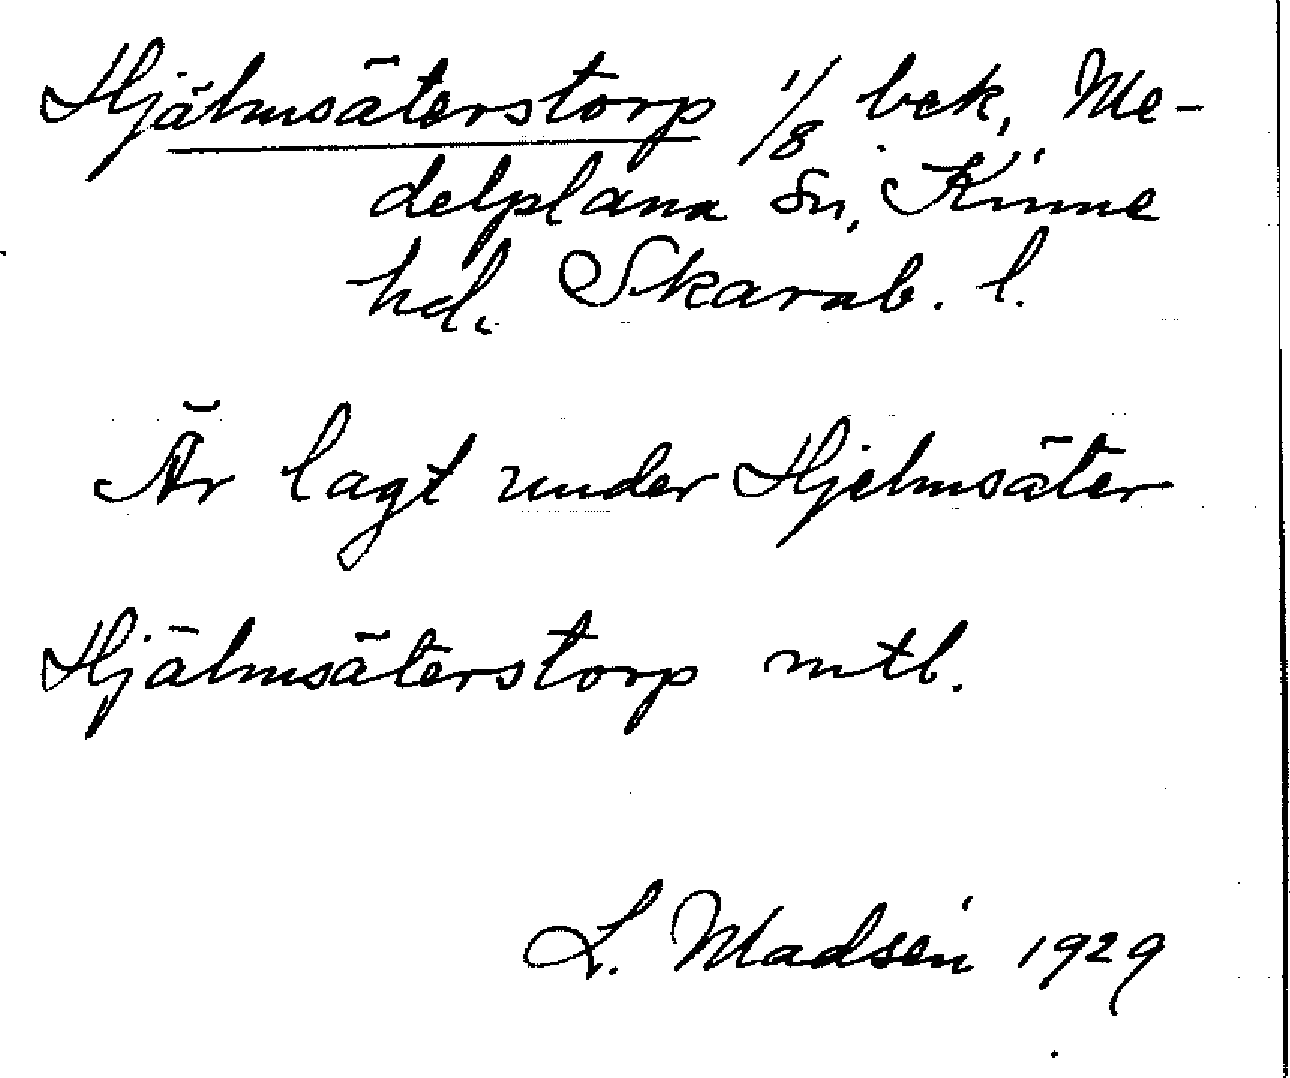 Hjälmsäterstorp 1/8 bek, Me-
delplana sn, Kinne
hd. Skarab. l.
Är lagt under Hjelmsäter
Hjälmsäterstorp mtl.
L. Madsén 1929